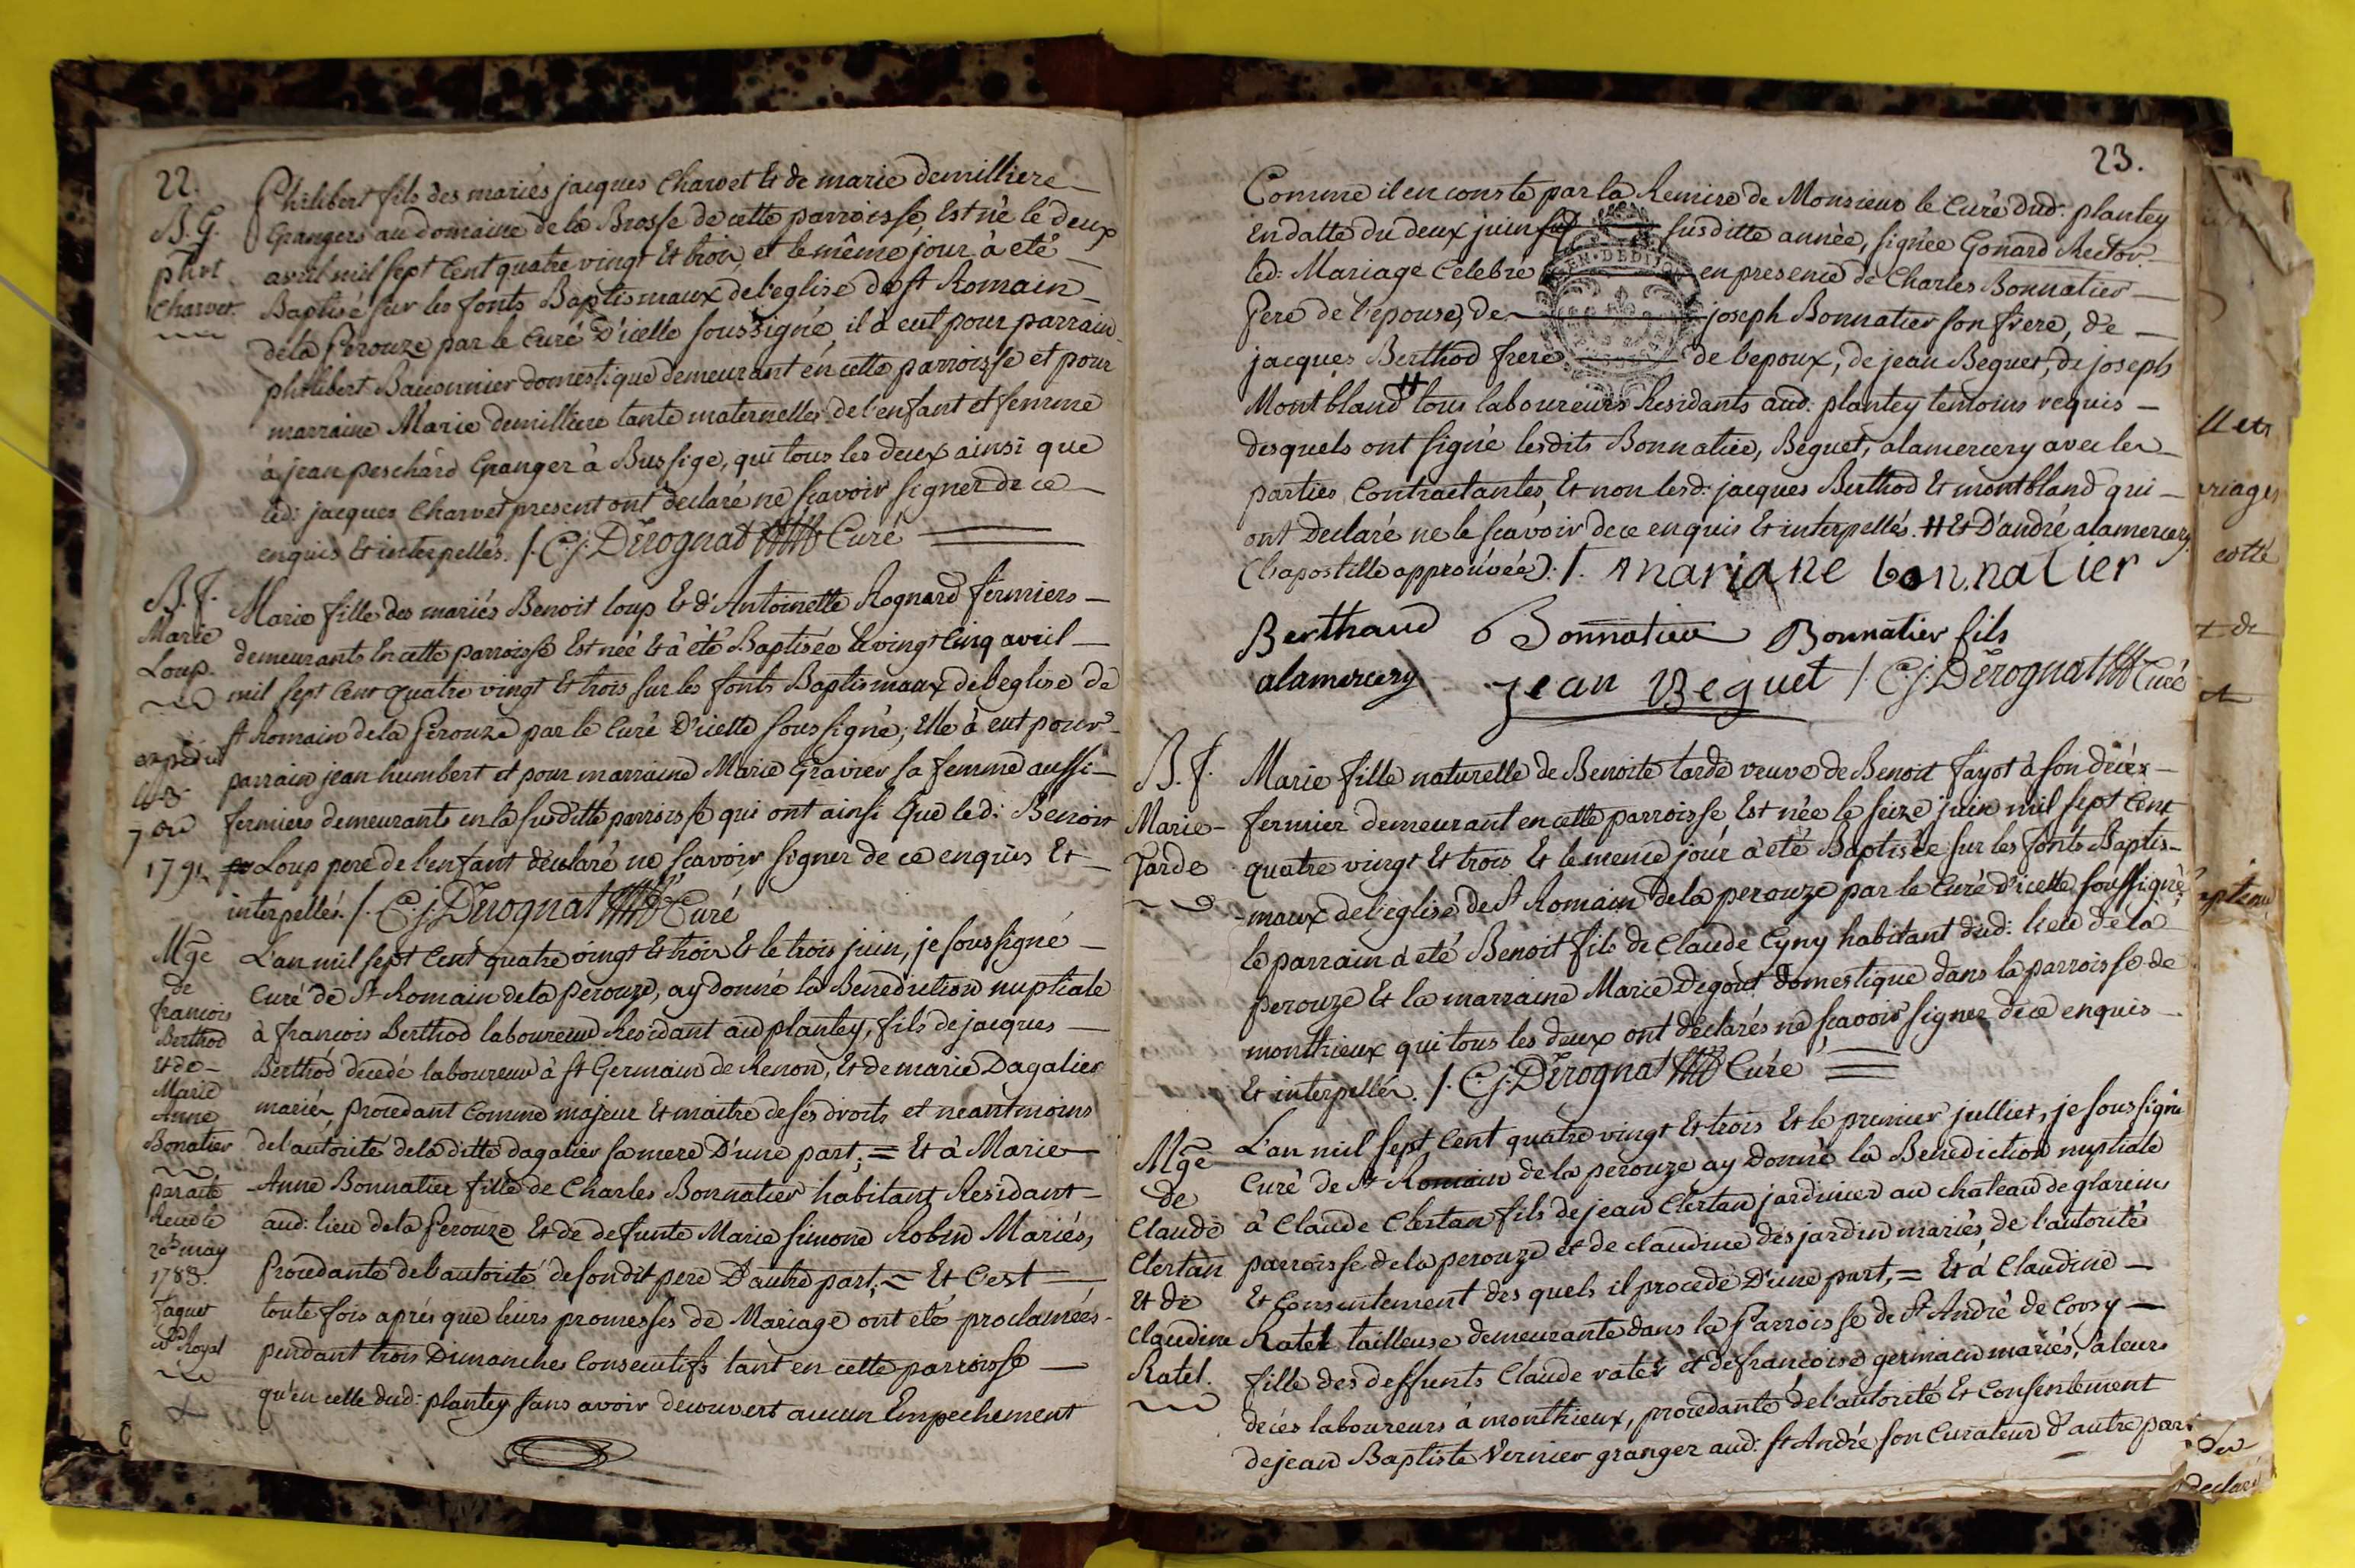 22.
B. G.
phlbt
Charvet.
Philibert fils des mariés jacques Charvet Et de marie demilliere
Grangers au domaine de la Brosse de cette parroisse, Est né le deux
avril mil sept Cent quatre vingt Et trois, et le même jour à eté
Baptisé sur les fonts Baptismaux de l'eglise de st Romain
de la Perouze par le Curé D'icelle soussigné, il à eut pour parrain
philibert Bauonnier domestique demeurant én cette parroisse et pour
marraine Marie demilliere tante maternelle de l'enfant et femme
à jean peschard Granger à Bussige, qui tous les deux ainsi que
led: jacques Charvet present ont declaré ne sçavoir signer de ce
enquis Et interpellés. /. C. j. Dérognat Curé
B. f.
Marie
Loup.
expédié
le 3
7bre
1791
Marie fille des mariés Benoit loup Et d'Antoinette Rognard fermiers
demeurants En cette parroisse Est née Et à été Baptisée le vingt Cinq avril
mil sept Cent quatre vingt Et trois sur les fonts Baptismaux de l'eglise de
st Romain de la Perouze par le Curé D'icelle soussigné; Elle à eut pour
parrain jean humbert et pour marraine Marie Gravier sa femme aussi
fermiers demeurants en la susditte parroisse qui ont ainsi Que led: Benoit
Loup pere de l'enfant déclaré ne sçavoir signer de ce enquis Et
interpellés. /. C. j. Dérognat Curé
Mge
de
francois
Berthod
Et de
Marie
Anne
Bonatier
par acte
Receu le
20e may
1783.
faguet
Nre Royal
L'an mil sept Cent quatre vingt Et trois Et le trois juin, je soussigné
Curé de St Romain de la perouze, ay donné la Benediction nuptiale
à francois Berthod laboureur Residant au plantey, fils de jacques
Berthod decedé laboureur à st Germain de Renon, Et de marie Dagalier
mariés, procedant Comme majeur Et maitre de ses droits et neantmoins
de l'autorité de la ditte dagalier sa mere D'une part; = Et à Marie
Anne Bonnatier fille de Charles Bonnatier habitant Residant
aud: lieu de la Perouze Et de defunte Marie simone Robin Mariés,
Procedante de l'autorité de son dit pere D'autre part; = Et C'est
toute fois aprés que leurs promesses de Mariage ont eté proclamées
pendant trois Dimanches Consecutifs tant en cette parroisse
qu'en celle dud: plantey sans avoir decouvert aucun Empechement
23.
Comme il en conste par la Remise de Monsieur le Curé dud: plantey
en datte du deux juin susditte année, signée Gonard Rector.
led: Mariage Celebré en presence de Charles Bonnatier
Pere de l'epouse, de joseph Bonnatier son frere, de
jacques Berthod frere de l'epoux, de jean Beguet, de joseph
Montbland # tous laboureurs Residants aud: plantey temoins requis
desquels ont signé lesdits Bonnatier, Beguet, alamercery avec les
parties Contractantes, Et non lesd: jacques Berthod Et montbland qui
ont Declaré ne le sçavoir de ce enquis Et interpellés. # Et D'andré alamercery.
(l'apostille approuvée): /. mariane bonnatier
Berthaud Bonnatier Bonnatier fils
alamercery jean Beguet /. C. j. Dérognat Curé
B. f.
Marie
Tarde
Marie fille naturelle de Benoite tarde veuve de Benoit fayot à son décéx
fermier demeurant en cette parroisse Est née le seize juin mil sept Cent
quatre vingt Et trois Et le meme jour à eté Baptisée sur les fonts Baptis-
-maux de l'eglise de St Romain de la perouze par le Curé d'icelle soussigné,
le parrain à eté Benoit fils de Claude Cyny habitant dud: lieu de la
perouze Et la marraine Marie Degout domestique dans la parroisse de
monthieux, qui tous les deux ont declarés ne sçavoir signer de ce enquis
Et interpellés. /. C. j. Dérognat Curé
Mge
de
Claude
Clertan
Et de
Claudine
Ratel.
L'an mil sept Cent quatre vingt Et trois Et le premier julliet, je soussigné
Curé de St Romain de la perouze ay Donné la Benediction nuptiale
à Claude Clertan fils de jean Clertan jardinier au chateau de glareins
parroisse de la perouze et de claudine desjardin mariés, de l'autorité
Et Consentement des quels il procede D'une part, = Et à Claudine
Ratel tailleuse demeurante dans la Parroisse de St André de Corsy
fille des deffunts Claude ratel et de francoise germain mariés, à leurs
décés laboureurs à monthieux, procedante de l'autorité Et Consentement
de jean Baptiste Vernier granger aud: st André son Curateur d'autre part.